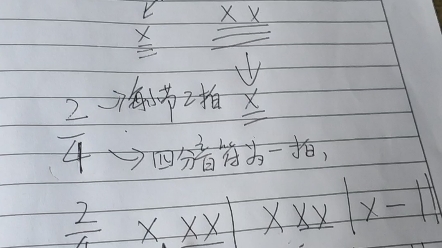 X X X
2 →每小节2拍 X
4 →四分音符为一拍,
2/4 X XX | X XX | X - ||